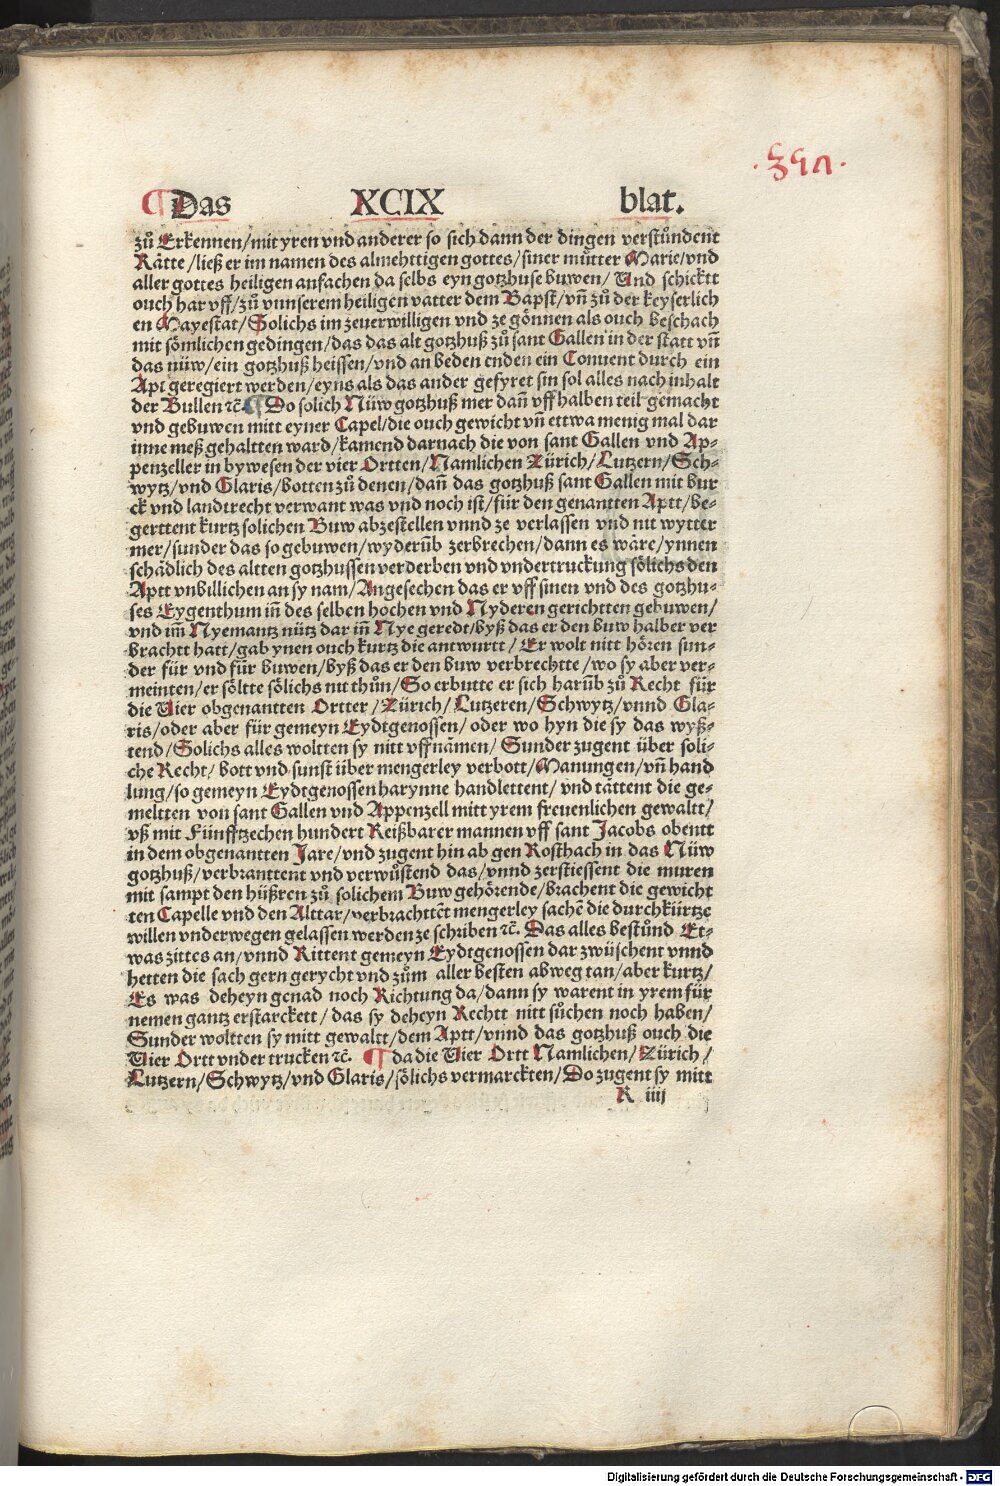 ¶ Das XCIX blat.
zů Erkennen/mit yren vnd anderer so sich dann der dingen verstůndent
Rätte/ließ er im namen des almehttigen gottes/siner můtter Marie/vnd
aller gottes heiligen anfachen da selbs eyn gotzhuse buwen/Und schicktt
ouch har vff/zů vnnserem heiligen vatter dem Bapst/vñ zů der keyserlich
en Mayestat/Solichs im zeuerwilligen vnd ze gönnen als ouch beschach
mit sömlichen gedingen/das das alt gotzhuß zů sant Gallen in der statt vñ
das nüw/ein gotzhuß heissen/vnd an beden enden ein Conuent durch ein
Apt geregiert werden/eyns als das ander gefyret sin sol alles nach inhalt
der Bullen ⁊c̄. ¶ Do solich Nüw gotzhuß mer dañ vff halben teil gemacht
vnd gebuwen mitt eyner Capel/die ouch gewicht vñ ettwa menig mal dar
inne meß gehaltten ward/kamend darnach die von sant Gallen vnd Ap⸗
penzeller in bywesen der vier Ortten/Namlichen Zürich/Lutzern/Sch⸗
wytz/vnd Glaris/botten zů denen/dañ das gotzhuß sant Gallen mit bur
ck vnd landtrecht verwant was vnd noch ist/für den genantten Aptt/be⸗
gerttent kurtz solichen Buw abzestellen vnnd ze verlassen vnd nit wytter
mer/sunder das so gebuwen/wyderūb zerbrechen/dann es wäre/ynnen
schädlich des altten gotzhussen verderben vnd vndertruckung sölichs den
Aptt vnbillichen an sy nam/Angesechen das er vff sinen vnd des gotzhu⸗
ses Eygenthum iñ des selben hochen vnd Nyderen gerichtten gebuwen/
vnd im̄ Nyemantz nütz dar iñ Nye geredt/byß das er den buw halber ver
brachtt hatt/gab ynen ouch kurtz die antwurtt/Er wolt nitt hören sun⸗
der für vnd für buwen/byß das er den buw verbrechtte/wo sy aber ver⸗
meinten/er söltte sölichs nit thůn/So erbutte er sich harūb zů Recht für
die Vier obgenantten Ortter/Zürich/Lutzeren/Schwytz/vnnd Gla⸗
ris/oder aber für gemeyn Eydtgenossen/oder wo hyn die sy das wyß⸗
tend/Solichs alles woltten sy nitt vffnämen/Sunder zugent über soli⸗
che Recht/bott vnd sunst über mengerley verbott/Manungen/vñ hand
lung/so gemeyn Eydtgenossen harynne handlettent/vnd tättent die ge⸗
meltten von sant Gallen vnd Appenzell mitt yrem freuenlichen gewaltt/
vß mit Fünfftzechen hundert Reißbarer mannen vff sant Jacobs obentt
in dem obgenantten Jare/vnd zugent hin ab gen Roschach in das Nüw
gotzhuß/verbranttent vnd verwůstend das/vnnd zerstiessent die muren
mit sampt den hüßren zů solichem Buw gehörende/brachent die gewicht
ten Capelle vnd den Alttar/verbrachttēt mengerley sachē die durch kürtze
willen vnderwegen gelassen werden ze schriben ⁊c̄. Das alles bestůnd Et⸗
was zittes an/vnnd Rittent gemeyn Eydtgenossen dar zwüschent vnnd
hetten die sach gern gerycht vnd zům aller besten abweg tan/aber kurtz/
Es was deheyn genad noch Richtung da/dann sy warent in yrem für
nemen gantz erstarckett/das sy deheyn Rechtt nitt sůchen noch haben/
Sunder woltten sy mitt gewaltt/dem Aptt/vnnd das gotzhuß ouch die
Vier Ortt vnder trucken ⁊c̄. ¶ da die Vier Ortt Namlichen/Zürich/
Lutzern/Schwytz/vnd Glaris/sölichs vermarckten/Do zugent sy mitt
R iiij
Digitalisierung gefördert durch die Deutsche Forschungsgemeinschaft - DFG